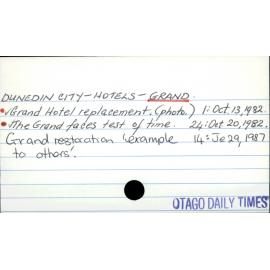 DUNEDIN CITY - HOTELS - GRAND.
Grand Hotel replacement. (photo.) 1: Oct 13, 1982.
The Grand faces test of time. 24: Oct 20, 1982.
Grand restoration 'example 14: Je 29, 1987
to others'.
OTAGO DAILY TIMES